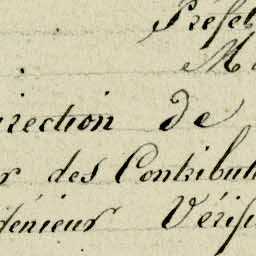 Préfet
M
irection de
r des Contribut
génieur Vérif